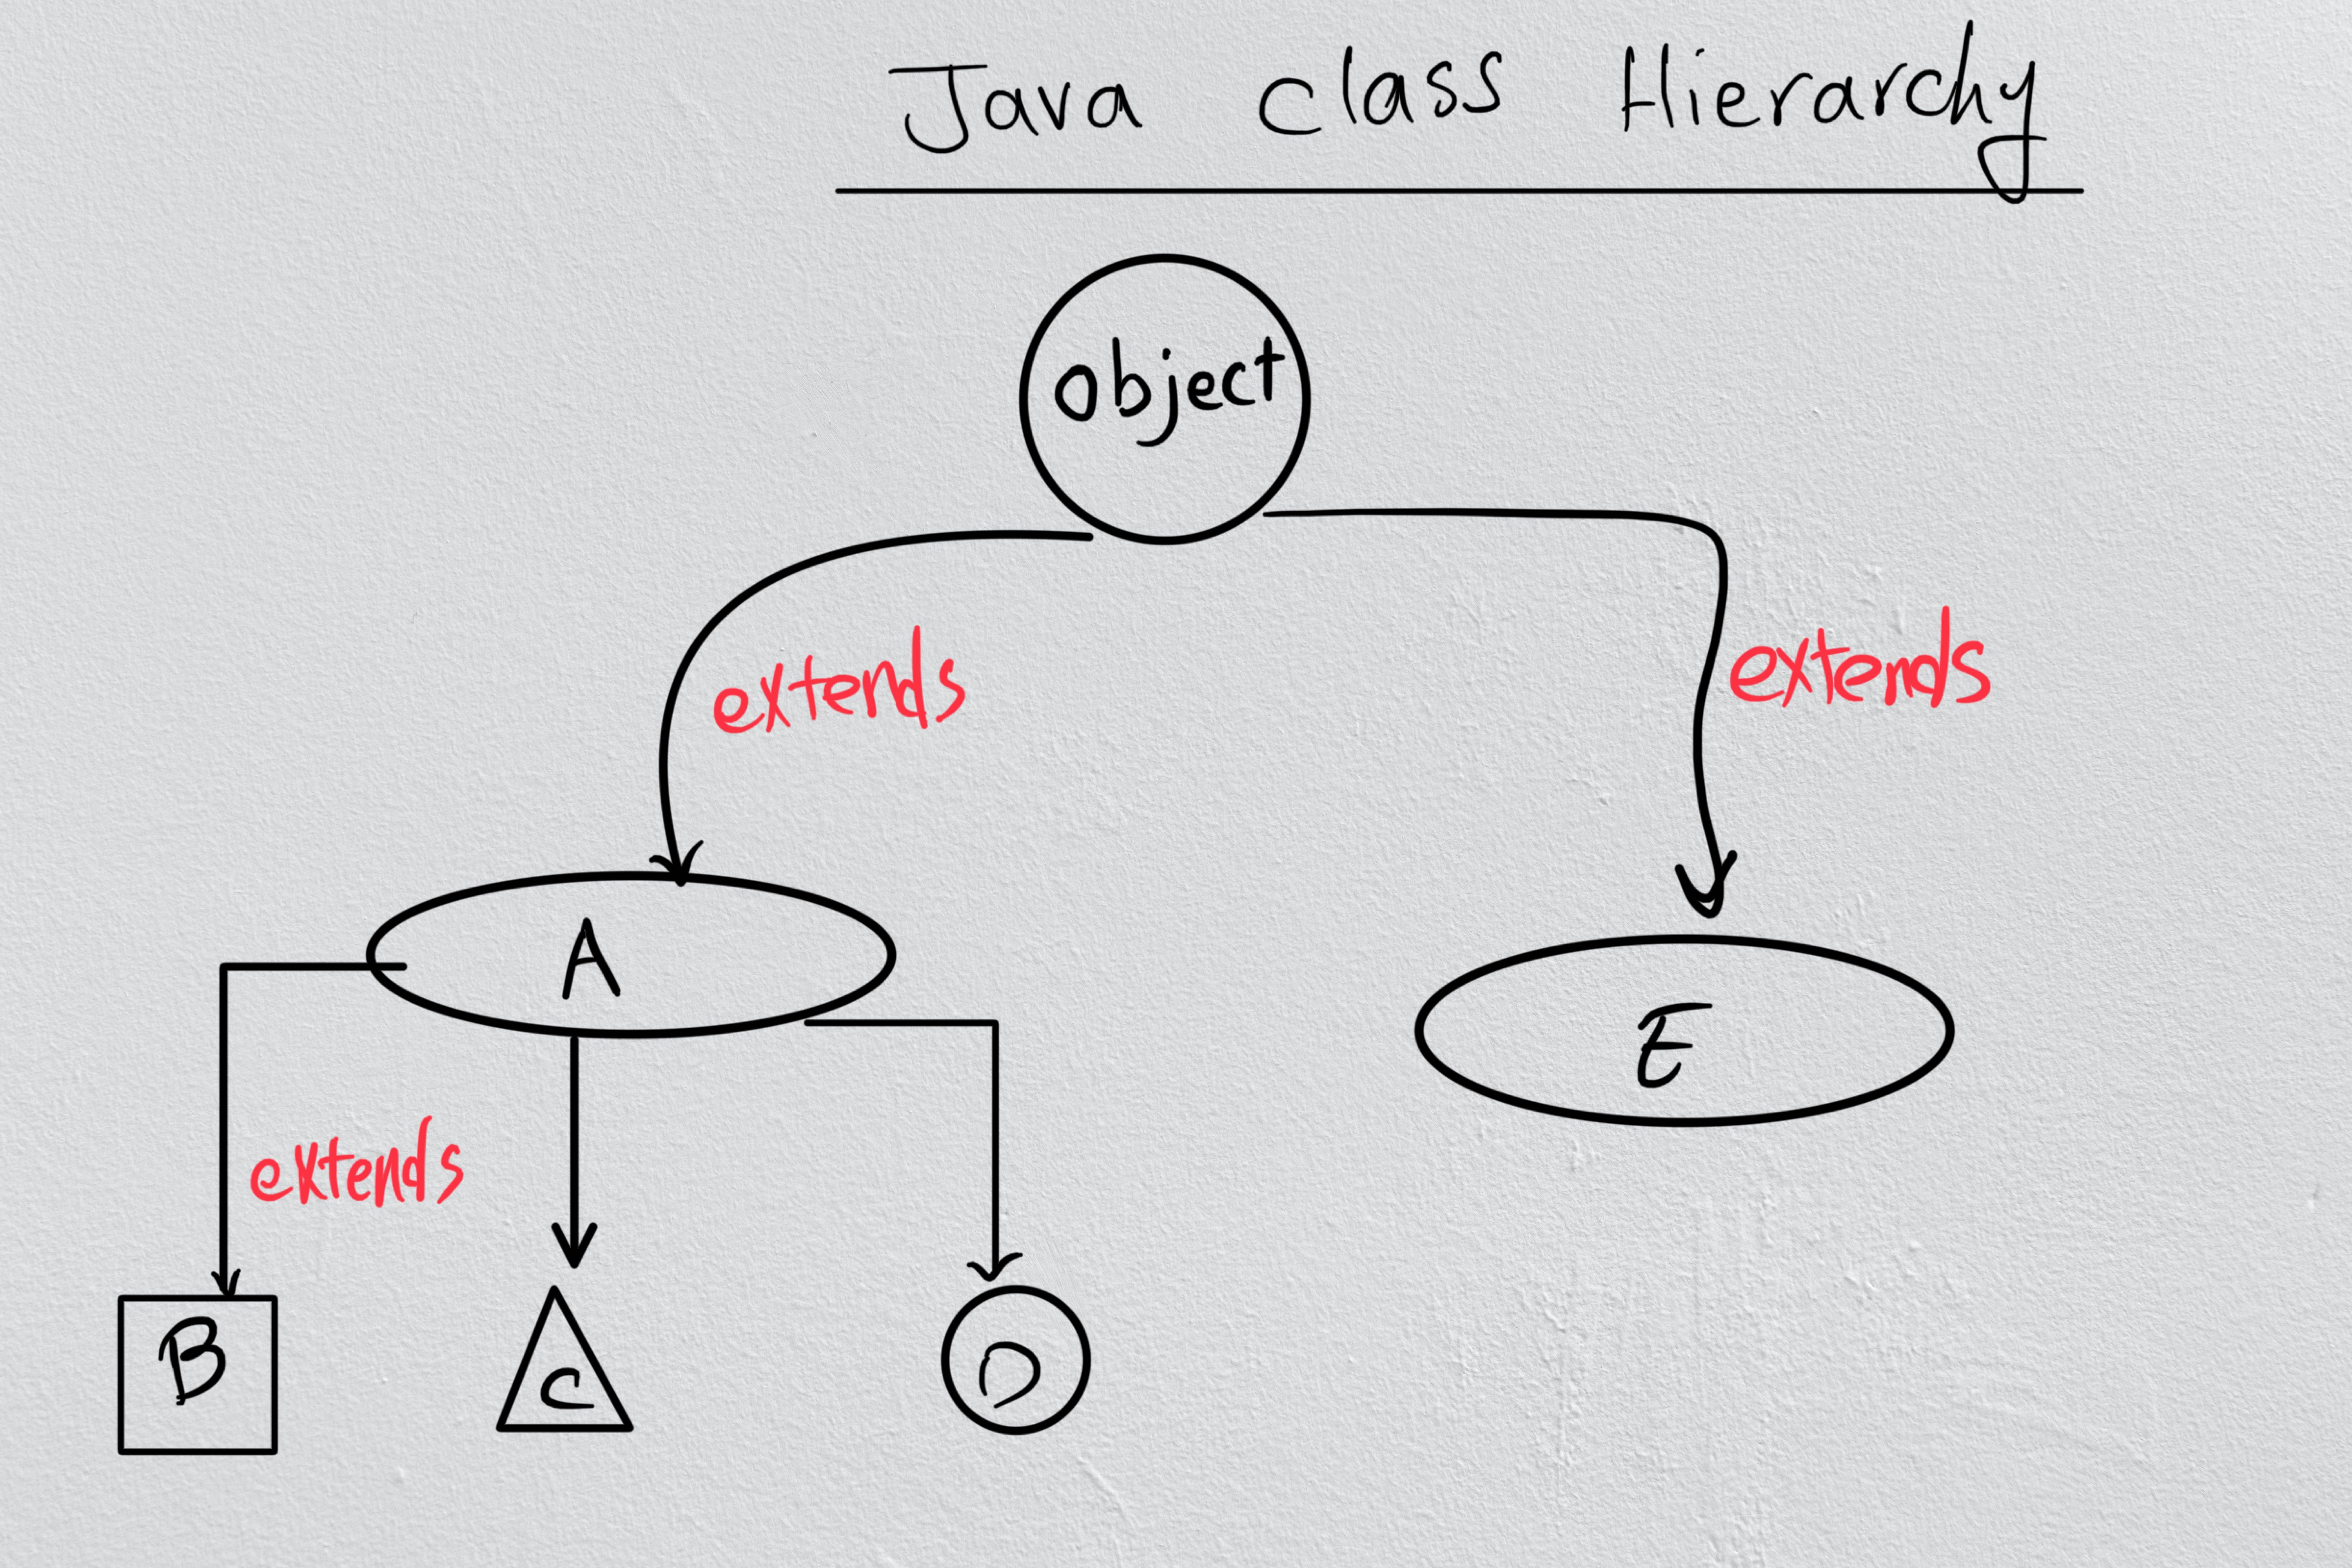 Java class Hierarchy
object
extends
extends
A
E
extends
B
C
D